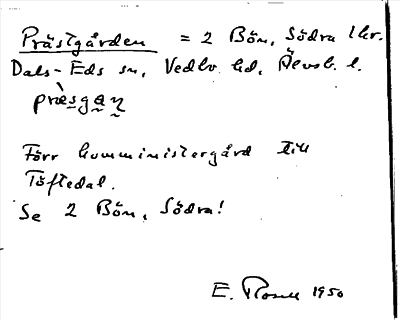 Prästgården = 2 Bön, Södra 1 hr.
Dals-Eds sn, Vedbo hd, Älvsb. l.
pràsgaṇ
Förr komministergård till
Töftedal.
Se 2 Bön, Södra!
E. Rosell 1950